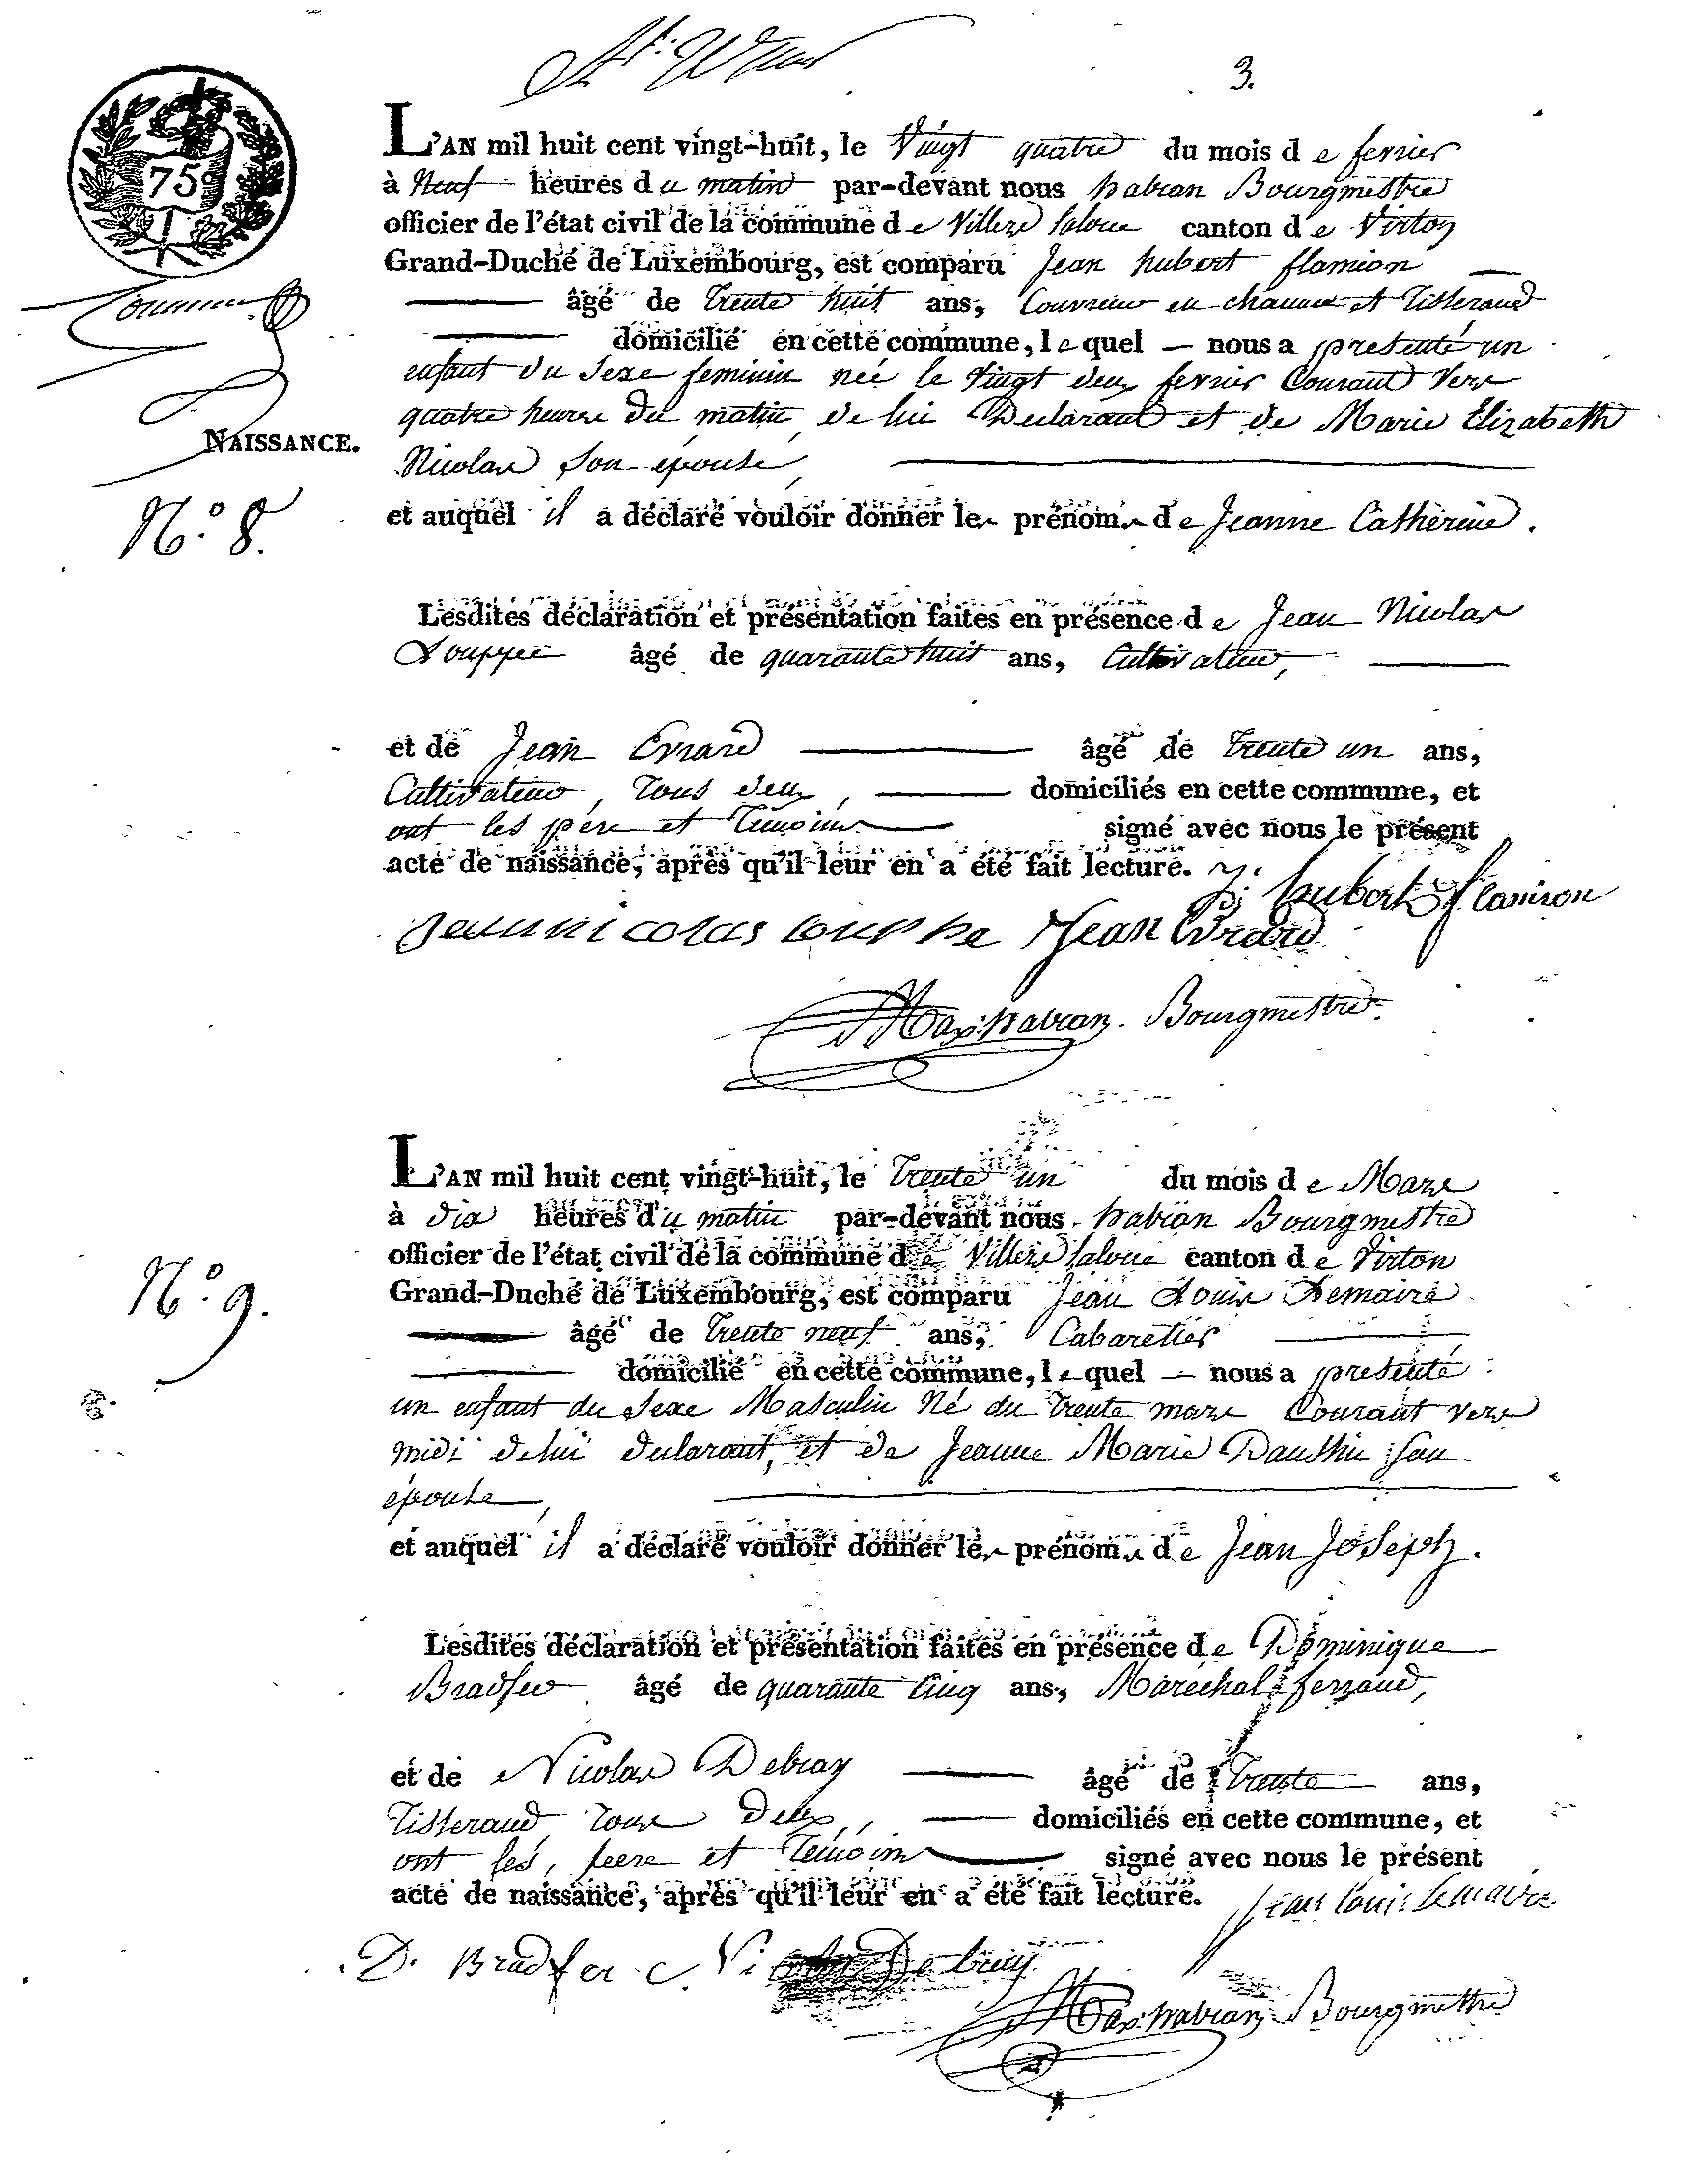 3.
75
L'AN mil huit cent vingt-huit, le Vingt quatre du mois d e fevrier
à Neuf heures d u matin par-devant nous habran Bourgmestre
officier de l'état civil de la commune d e Villers Laloue canton d e Virton
Grand-Duché de Luxembourg, est comparu Jean hubert flamion
âgé de Trente huit ans, Couvreur en chaume et Tisserand
domicilié en cette commune, l e quel — nous a presenté un
enfant du Sexe feminin neé le Vingt deux fevrier Courant Vers
quatre heures du matin, de lui Declarant et de Marie Elizabeth
NAISSANCE.
Nicolas Son épouse,
N.º 8.
et auquel il a déclaré vouloir donner les prénoms d e Jeanne Catherine.
Lesdites déclaration et présentation faites en présence d e Jean Nicolas
Louppe âgé de quarante huit ans, Cultivateur,
et de Jean Evrard âgé de Trente un ans,
Cultivateur, Tous deux, domiciliés en cette commune, et
ont les père et Temoins signé avec nous le présent
acte de naissance, après qu'il leur en a été fait lecture. J: hubert flamion
Jean nicolas louppe Jean Evrard
Max: habran. Bourgmestre.
L'AN mil huit cent vingt-huit, le Trente un du mois d e Mars
à dix heures d u matin par-devant nous habran Bourgmestre
officier de l'état civil de la commune d e Villers Laloue canton d e Virton
N.º 9.
Grand-Duché de Luxembourg, est comparu Jean Louis Lemaire
âgé de Trente neuf ans, Cabaretier
domicilié en cette commune, l e quel — nous a presenté
un enfant du Sexe Masculin Né du trente mars Courant vers
midi de lui declarant, et de Jeanne Marie Dauthin Son
épouse,
et auquel il a déclaré vouloir donner les prénoms d e Jean Joseph.
Lesdites déclaration et présentation faites en présence d e Dominique
Bradfer âgé de quarante Cinq ans, Maréchal ferrand,
et de Nicolas Debray âgé de Trente ans,
Tisserand Tous Deux, domiciliés en cette commune, et
ont les, peere et Temoins signé avec nous le présent
acte de naissance, après qu'il leur en a été fait lecture. Jean Louis Lemaire
D. Bradfer Nicolas Debray
Max: habran Bourgmestre